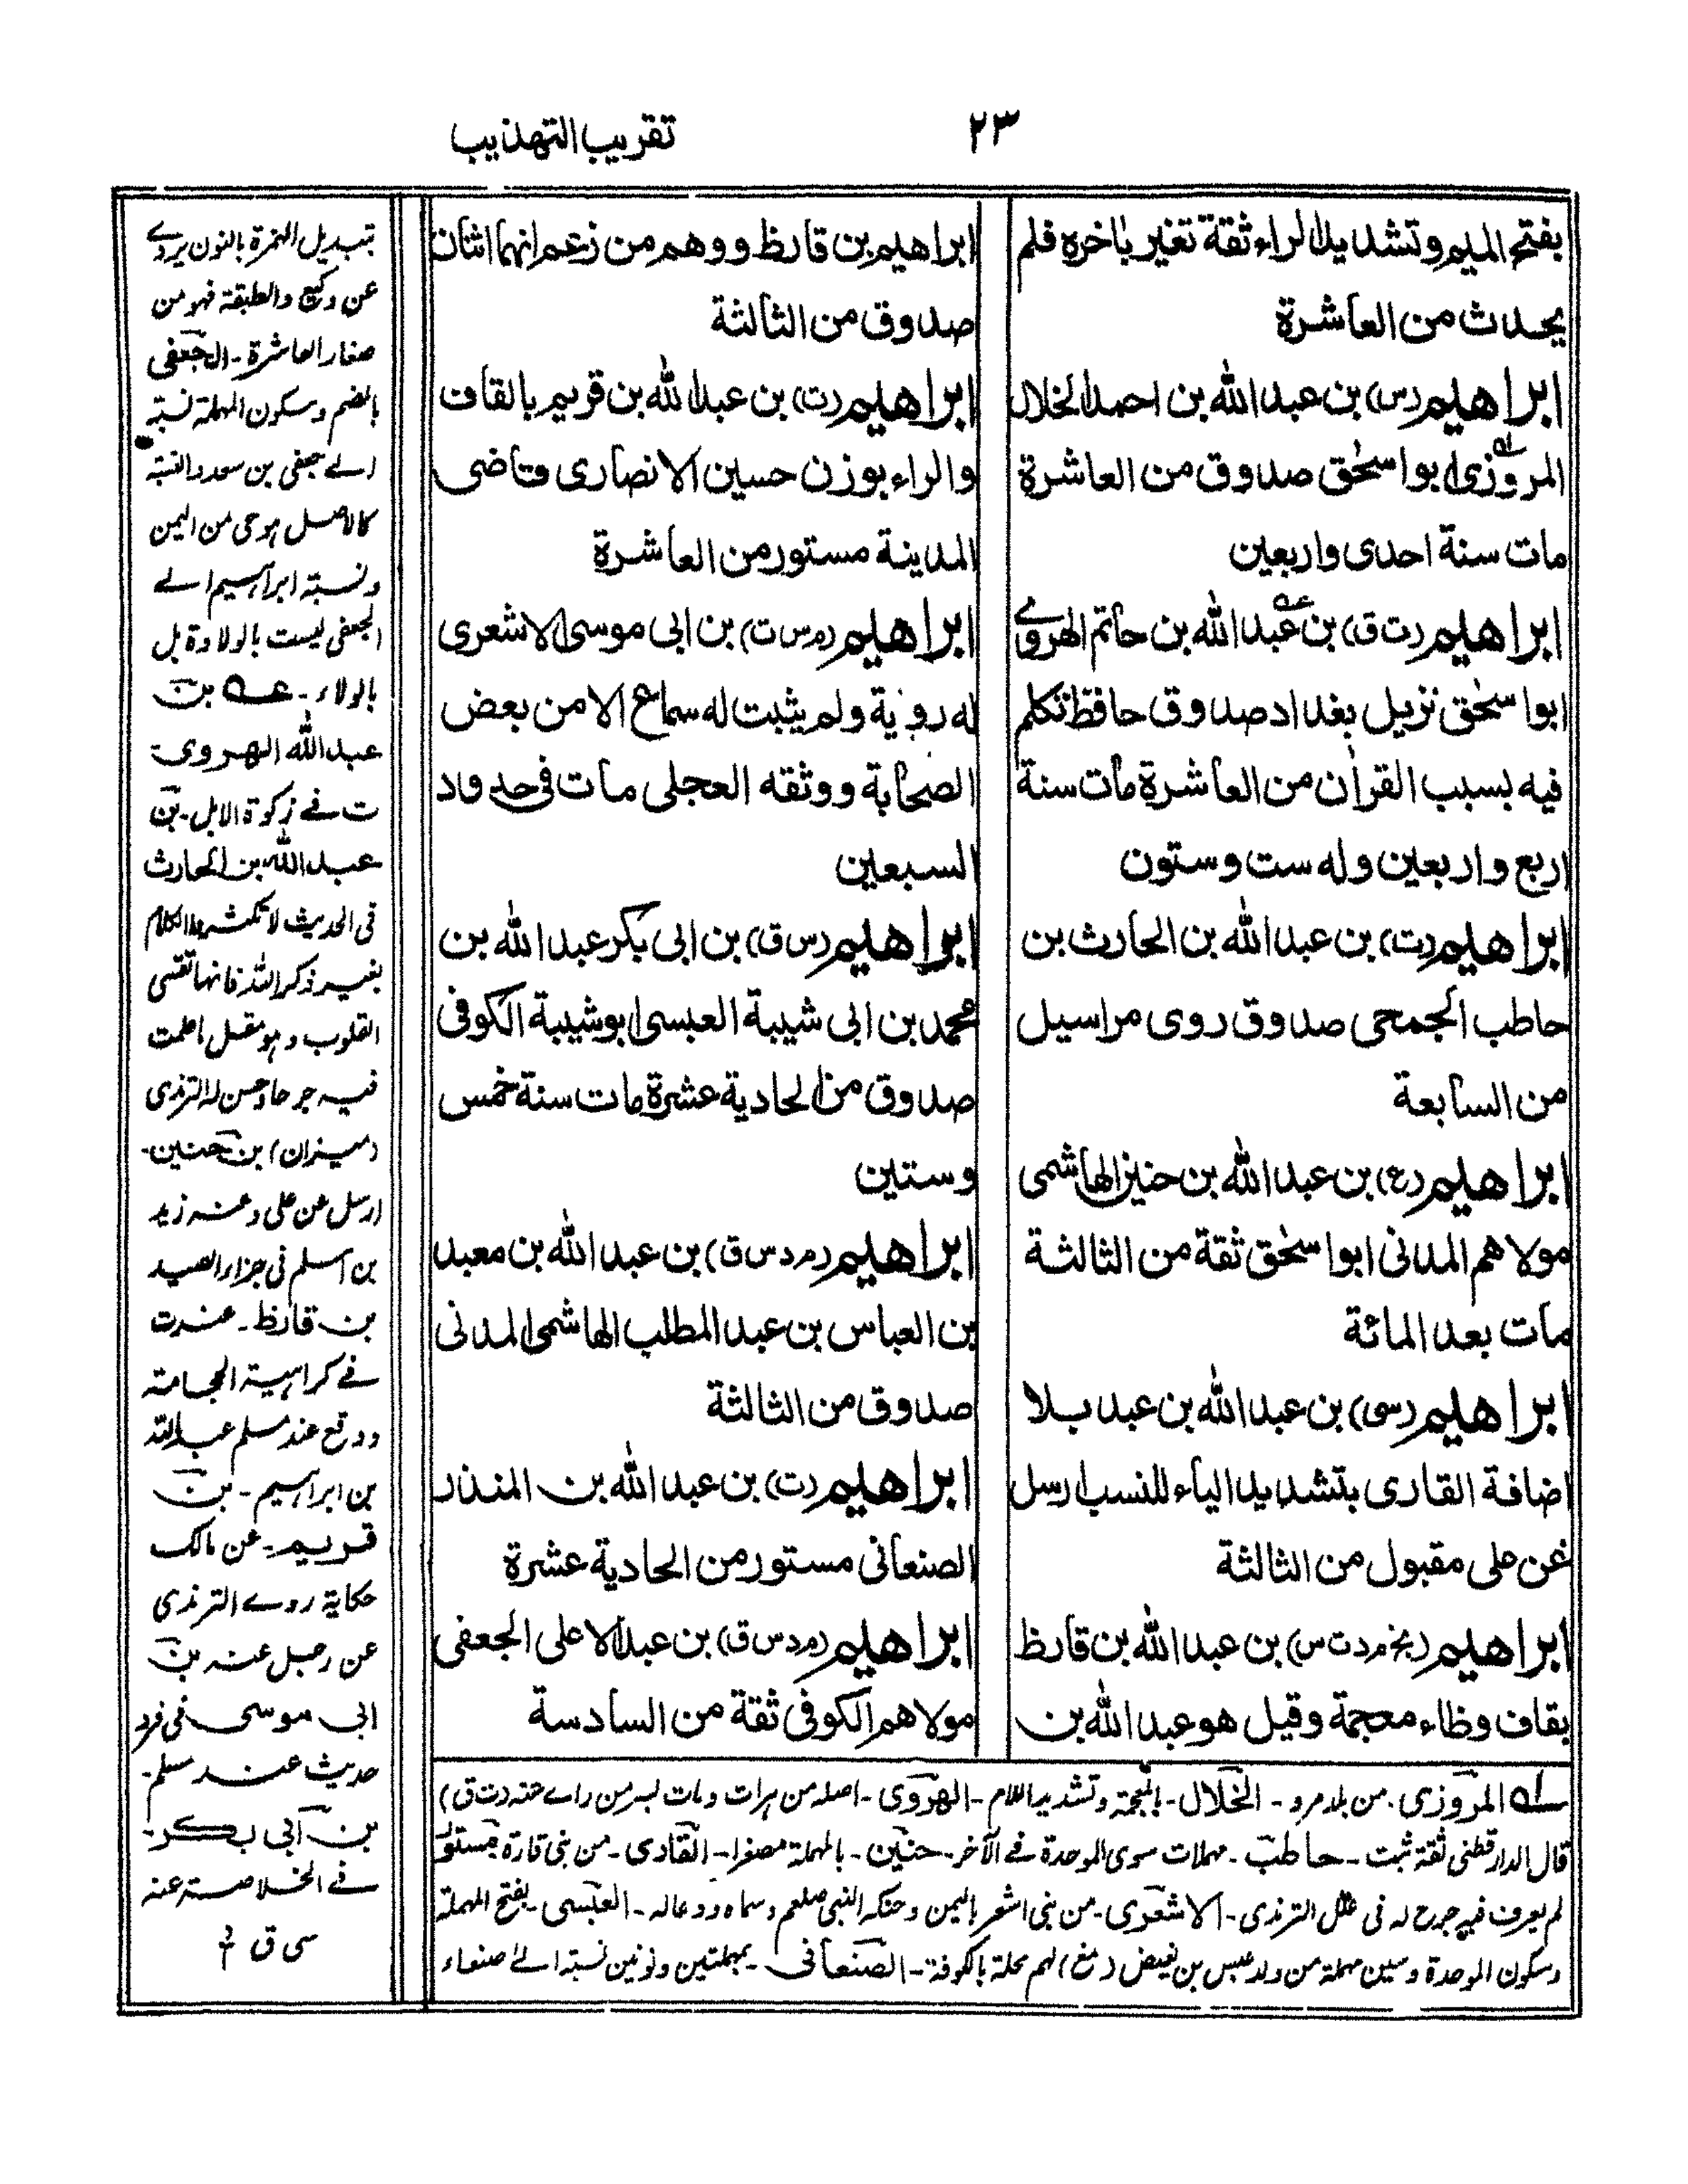 ٢٣
تقريب التهذيب
بفتح الميم وتشديد الراء ثقة تغير باخره فلم
يحدث من العاشرة
ابراهيم (س) بن عبد الله بن احمد الخلال
المروزى ابو اسحٰق صدوق من العاشرة
مات سنة احدى واربعين
ابراهيم (ت ق) بن عبد الله بن حاتم الهروى
ابو اسحٰق نزيل بغداد صدوق حافظ تكلم
فيه بسبب القراٰن من العاشرة مات سنة
اربع واربعين وله ست وستون
ابراهيم (ت) بن عبد الله بن الحارث بن
حاطب الجمحى صدوق روى مراسيل
من السابعة
ابراهيم (ع) بن عبد الله بن حنين الهاشمى
مولاهم المدنى ابو اسحٰق ثقة من الثالثة
مات بعد المائة
ابراهيم (سى) بن عبد الله بن عبد بلا
اضافة القارى بتشديد الياء للنسب ارسل
عن على مقبول من الثالثة
ابراهيم (بخ م د ت س) بن عبد الله بن قارظ
بقاف وظاء معجمة وقيل هو عبد الله بن
ابراهيم بن قارظ ووهم من زعم انهما اثنان
صدوق من الثالثة
ابراهيم (ت) بن عبد الله بن قريم بالقاف
والراء بوزن حسين الانصارى قاضى
المدينة مستور من العاشرة
ابراهيم (م س ت) بن ابى موسى الاشعرى
له روية ولم يثبت له سماع الا من بعض
الصحابة ووثقه العجلى مات فى حدود
السبعين
ابراهيم (س ق) بن ابى بكر عبد الله بن
محمد بن ابى شيبة العبسى ابو شيبة الكوفى
صدوق من الحادية عشرة مات سنة خمس
وستين
ابراهيم (م د س ق) بن عبد الله بن معبد
بن العباس بن عبد المطلب الهاشمى المدنى
صدوق من الثالثة
ابراهيم (ت) بن عبد الله بن المنذر
الصنعانى مستور من الحادية عشرة
ابراهيم (م د س ق) بن عبد الاعلى الجعفى
مولاهم الكوفى ثقة من السادسة
تبديل الهمزة بالنون يروے
عن وكيع والطبقة فهو من
صغار العاشرة - الجعفى
بالضم وسكون المهملة نسبة
الے جعفى بن سعد والنسبة
كالاصل هو حى من اليمن
ونسبة ابراهيم الے
الجعفى ليست بالولادة بل
بالولاء - عه بن
عبد الله الهروى -
ت فے زكوة الابل - بن
عبد الله بن الحارث
فى الحديث لا تكثروا الكلام
بغير ذكر الله فانها تقسى
القلوب وهو مقل ما علمت
فيه جرحا وحسن له الترمذى
(ميزان) بن حنين -
ارسل عن على وعنه زيد
بن اسلم فى جزاء الصيد
بن قارظ - عند ت
فے كراهية الحجامة
ووقع عند مسلم عبد الله
بن ابراهيم - بن
قريم - عن مالك
حكاية روے الترمذى
عن رجل عنه بن
ابى موسى فى فرد
حديث عند مسلم -
بن ابى بكر -
فے الخلاصة عنه
سى ق
له المروزى - من بلد مرو - الخلال - بالمعجمة وتشديد اللام - الهروى - اصله من هرات ومات بسر من راے حته (ت ق)
قال الدارقطنى ثقة ثبت - حاطب - مهملات سوى الموحدة فے الآخر - حنين - بالمهملة مصغرا - القارى - من بنى قارة مستور
لم يعرف فيه جرح له فى علل الترمذى - الاشعرى - من بنى اشعر باليمن وحنكه النبى صلعم وسماه ودعا له - العبسى - بفتح المهملة
وسكون الموحدة وسين مهملة من ولد عبس بن بغيض (مغ) لهم محلة بالكوفة - الصنعانى - بمهملتين ونونين نسبة الے صنعاء